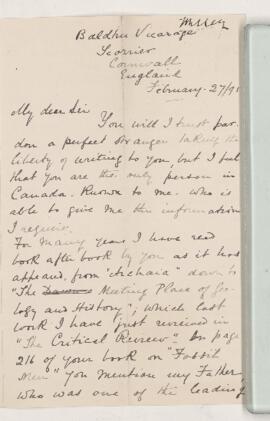 Baldhu Vicarage
Scorrier
Cornwall
England
February 27/9
My dear Sir
You will I trust par
don a perfect stranger taking the
liberty of writing to you, but I feel
that you are the only person in
Canada. Known to me. who is
able to give me the information
I require.
For many years I have read
book after book by you as it has
appeared, from "Archaia" down to
"The Meeting Place of Geo-
logy and History"; which last
work I have just reviewed in
"The Critical Review". On page
216 of your book on "Fossil
Men" you mention my Father,
who was one of the leading